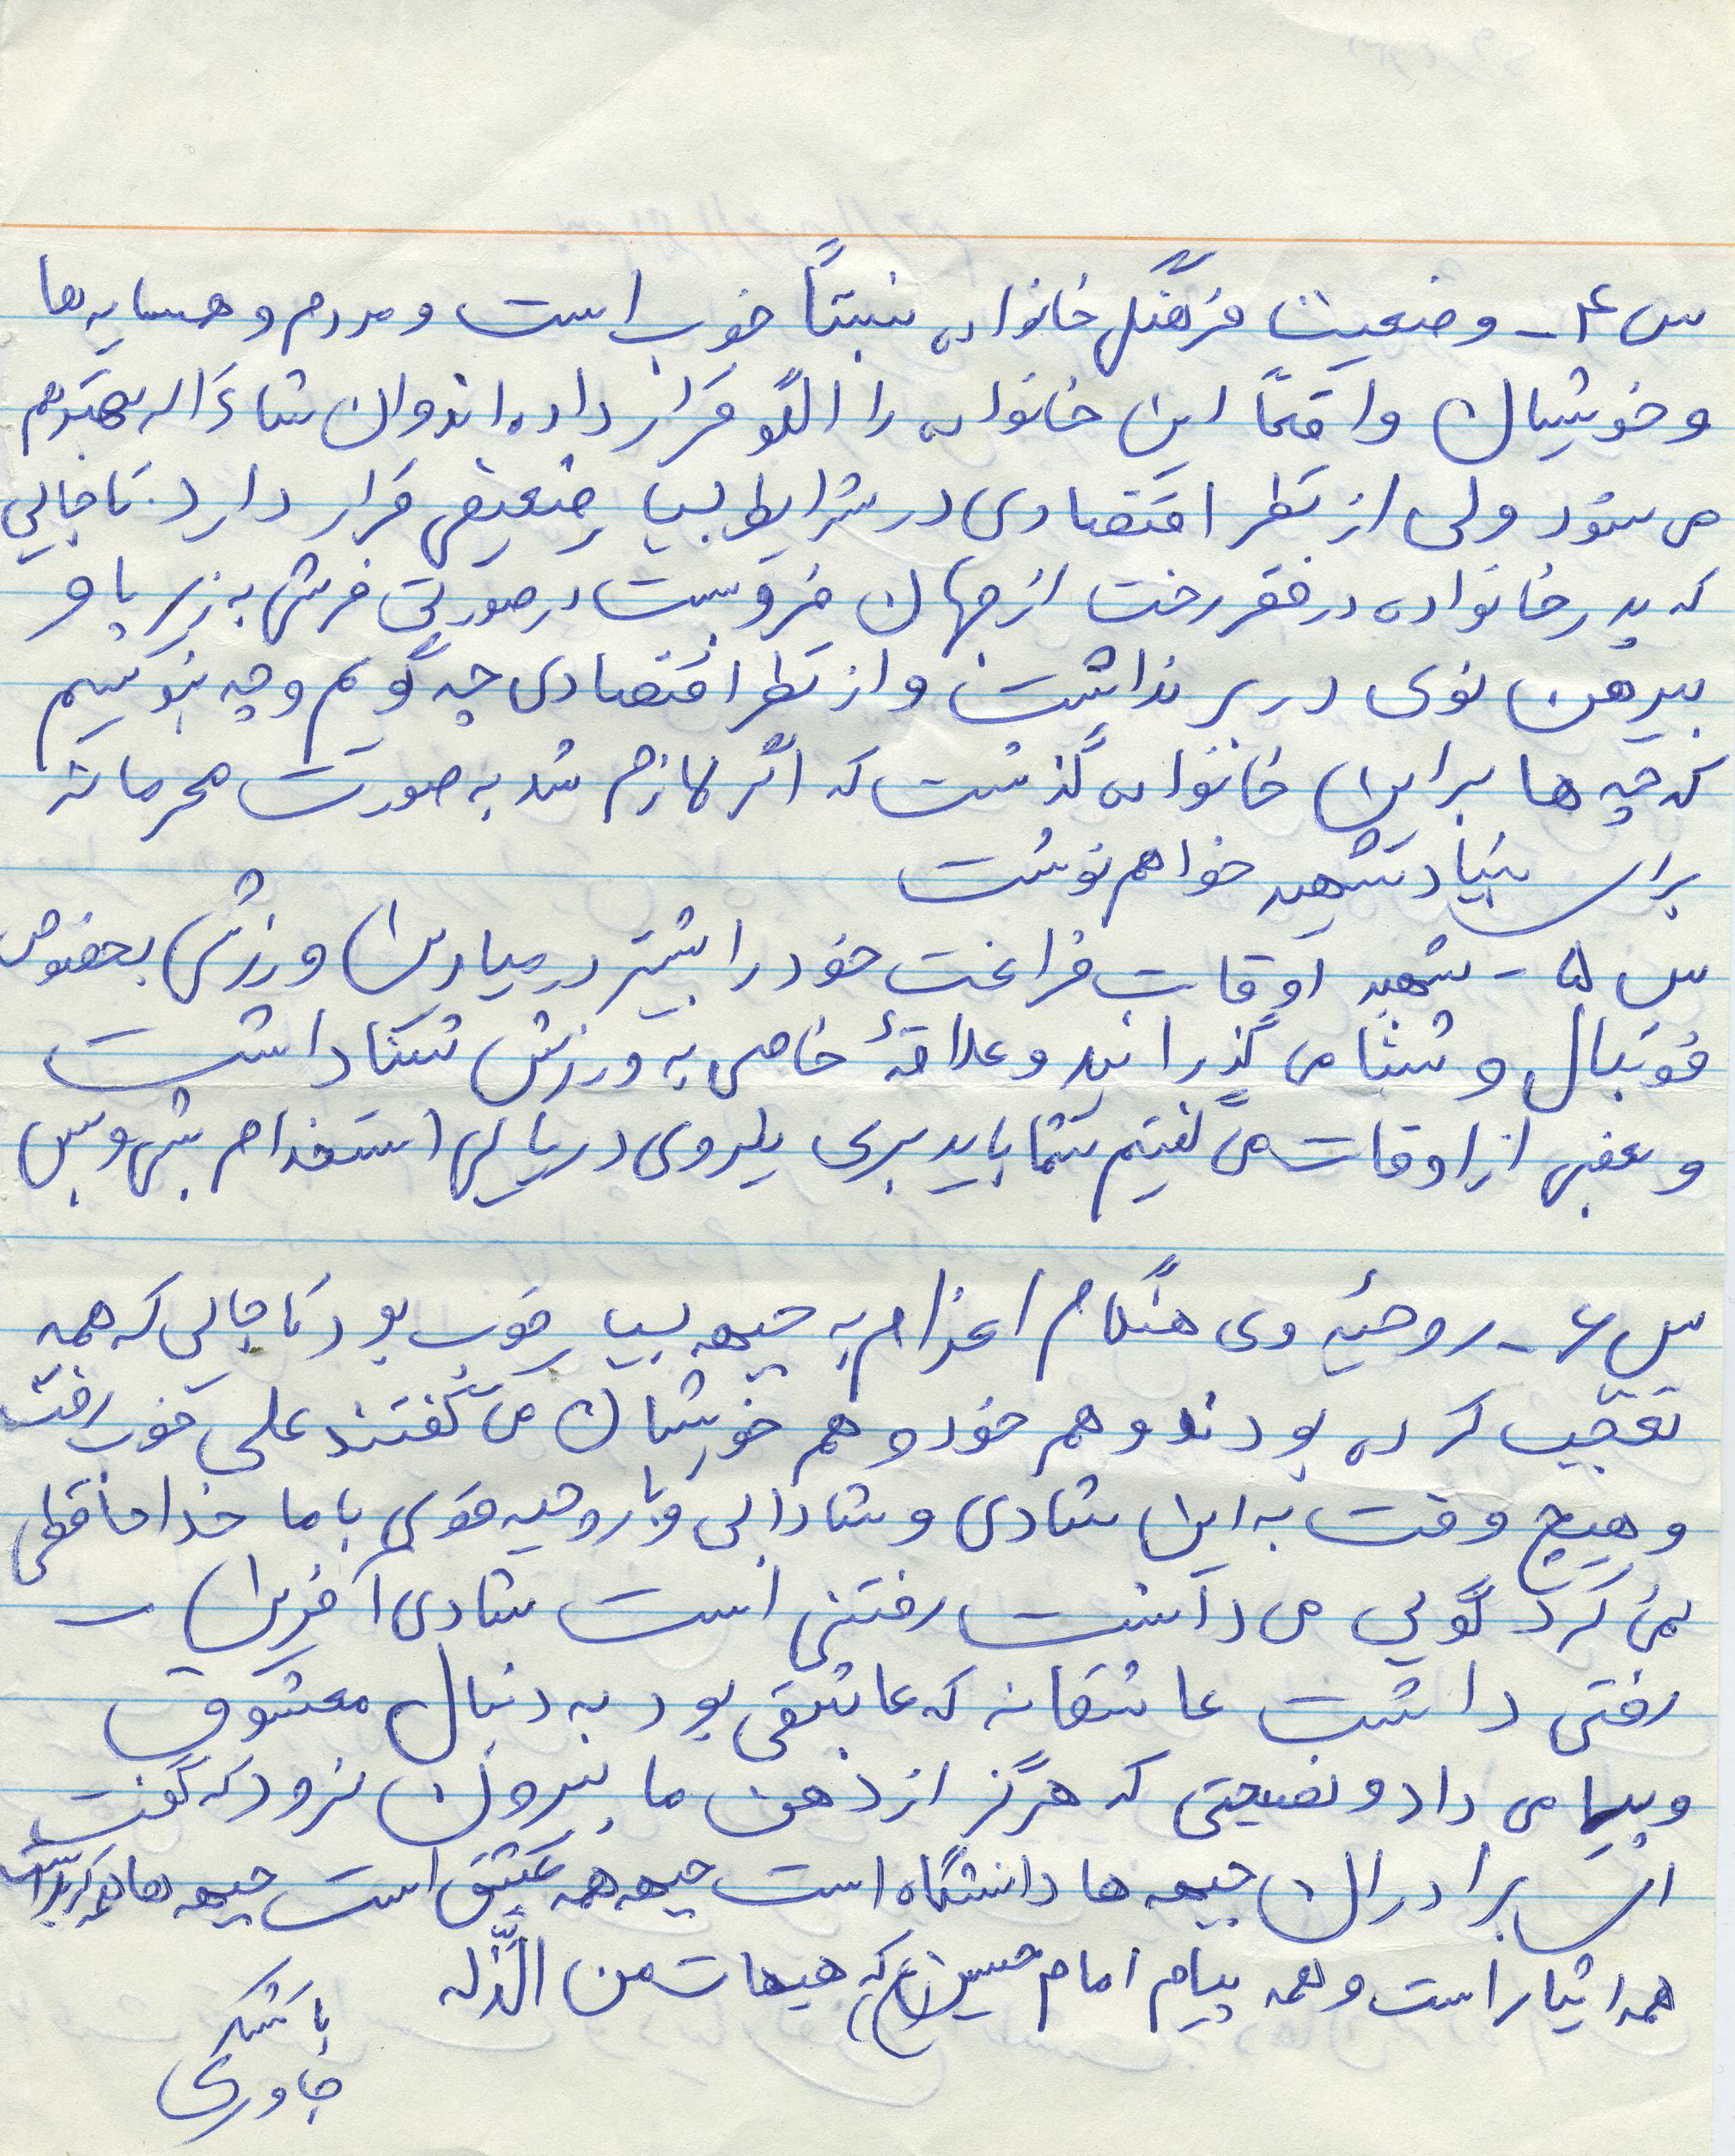 س ۴ - وضعیت فرهنگی خانواده نسبتاً خوب است و مردم و همسایه ها
و خویشان واقعاً این خانواده را الگو قرار داده اند و ان شاءاله بهتر هم
می شود ولی از نظر اقتصادی در شرایط بسیار ضعیفی قرار دارد. تا جایی
که پدر خانواده در فقر رخت از جهان فرو بست در صورتی فرش به زیر پا و
پیرهن نوی در بر نداشت و از نظر اقتصادی چه گویم و چه بنویسیم
که چه ها بر این خانواده گذشت که اگر لازم شد به صورت محرمانه
برای بنیاد شهید خواهم نوشت
س ۵ - شهید اوقات فراغت خود را بیشتر در میادین ورزشی بخصوص
فوتبال و شنا می گذرانید و علاقهٔ خاصی به ورزش شنا داشت
و بعضی از اوقات می گفتیم شما باید بری نیروی دریایی استخدام بشی و بس
س ۶ - روحیهٔ وی هنگام اعزام به جبهه بسیار خوب بود تا جایی که همه
تعجب کرده بودند و هم خود و هم خویشان می گفتند علی خوب رفت
و هیچ وقت به این شادی و شادابی و با روحیه قوی با ما خداحافظی
نمی کرد گویی می دانست رفتنی است شادی آفرین
رفتی داشت عاشقانه که عاشقی بود به دنبال معشوق
و پیامی داد و نصیحتی که هرگز از ذهن ما بیرون نرود که گفت
ای برادران جبهه ها دانشگاه است جبهه همه عشق است جبهه ها همه کربلاست
همه ایثار است و همه پیام امام حسین (ع) که هیهات من الذّله
با تشکر
خاوری